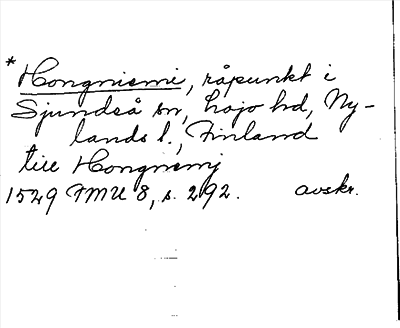 *Hongniemi, råpunkt i
Sjundså sn, Lojo hd, Ny-
lands l., Finland
till Hongnemj
1529 FMU 8, s. 292. avskr.